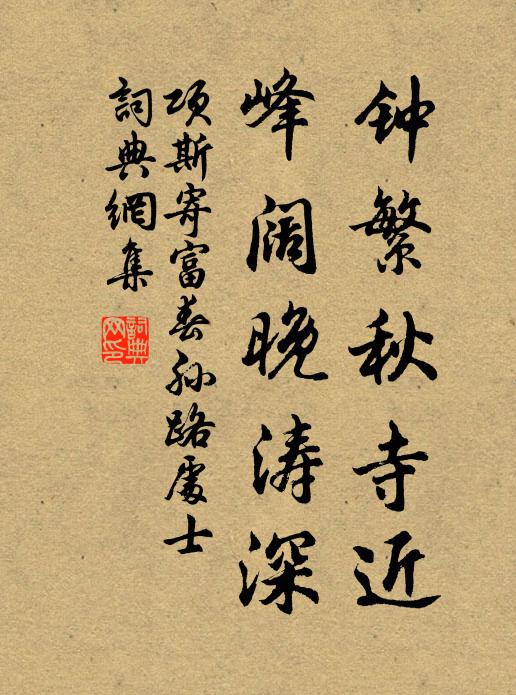 钟繁秋寺近
峰阔晚涛深
项斯寄富春孙路處士
詞典網集
詞典
网印